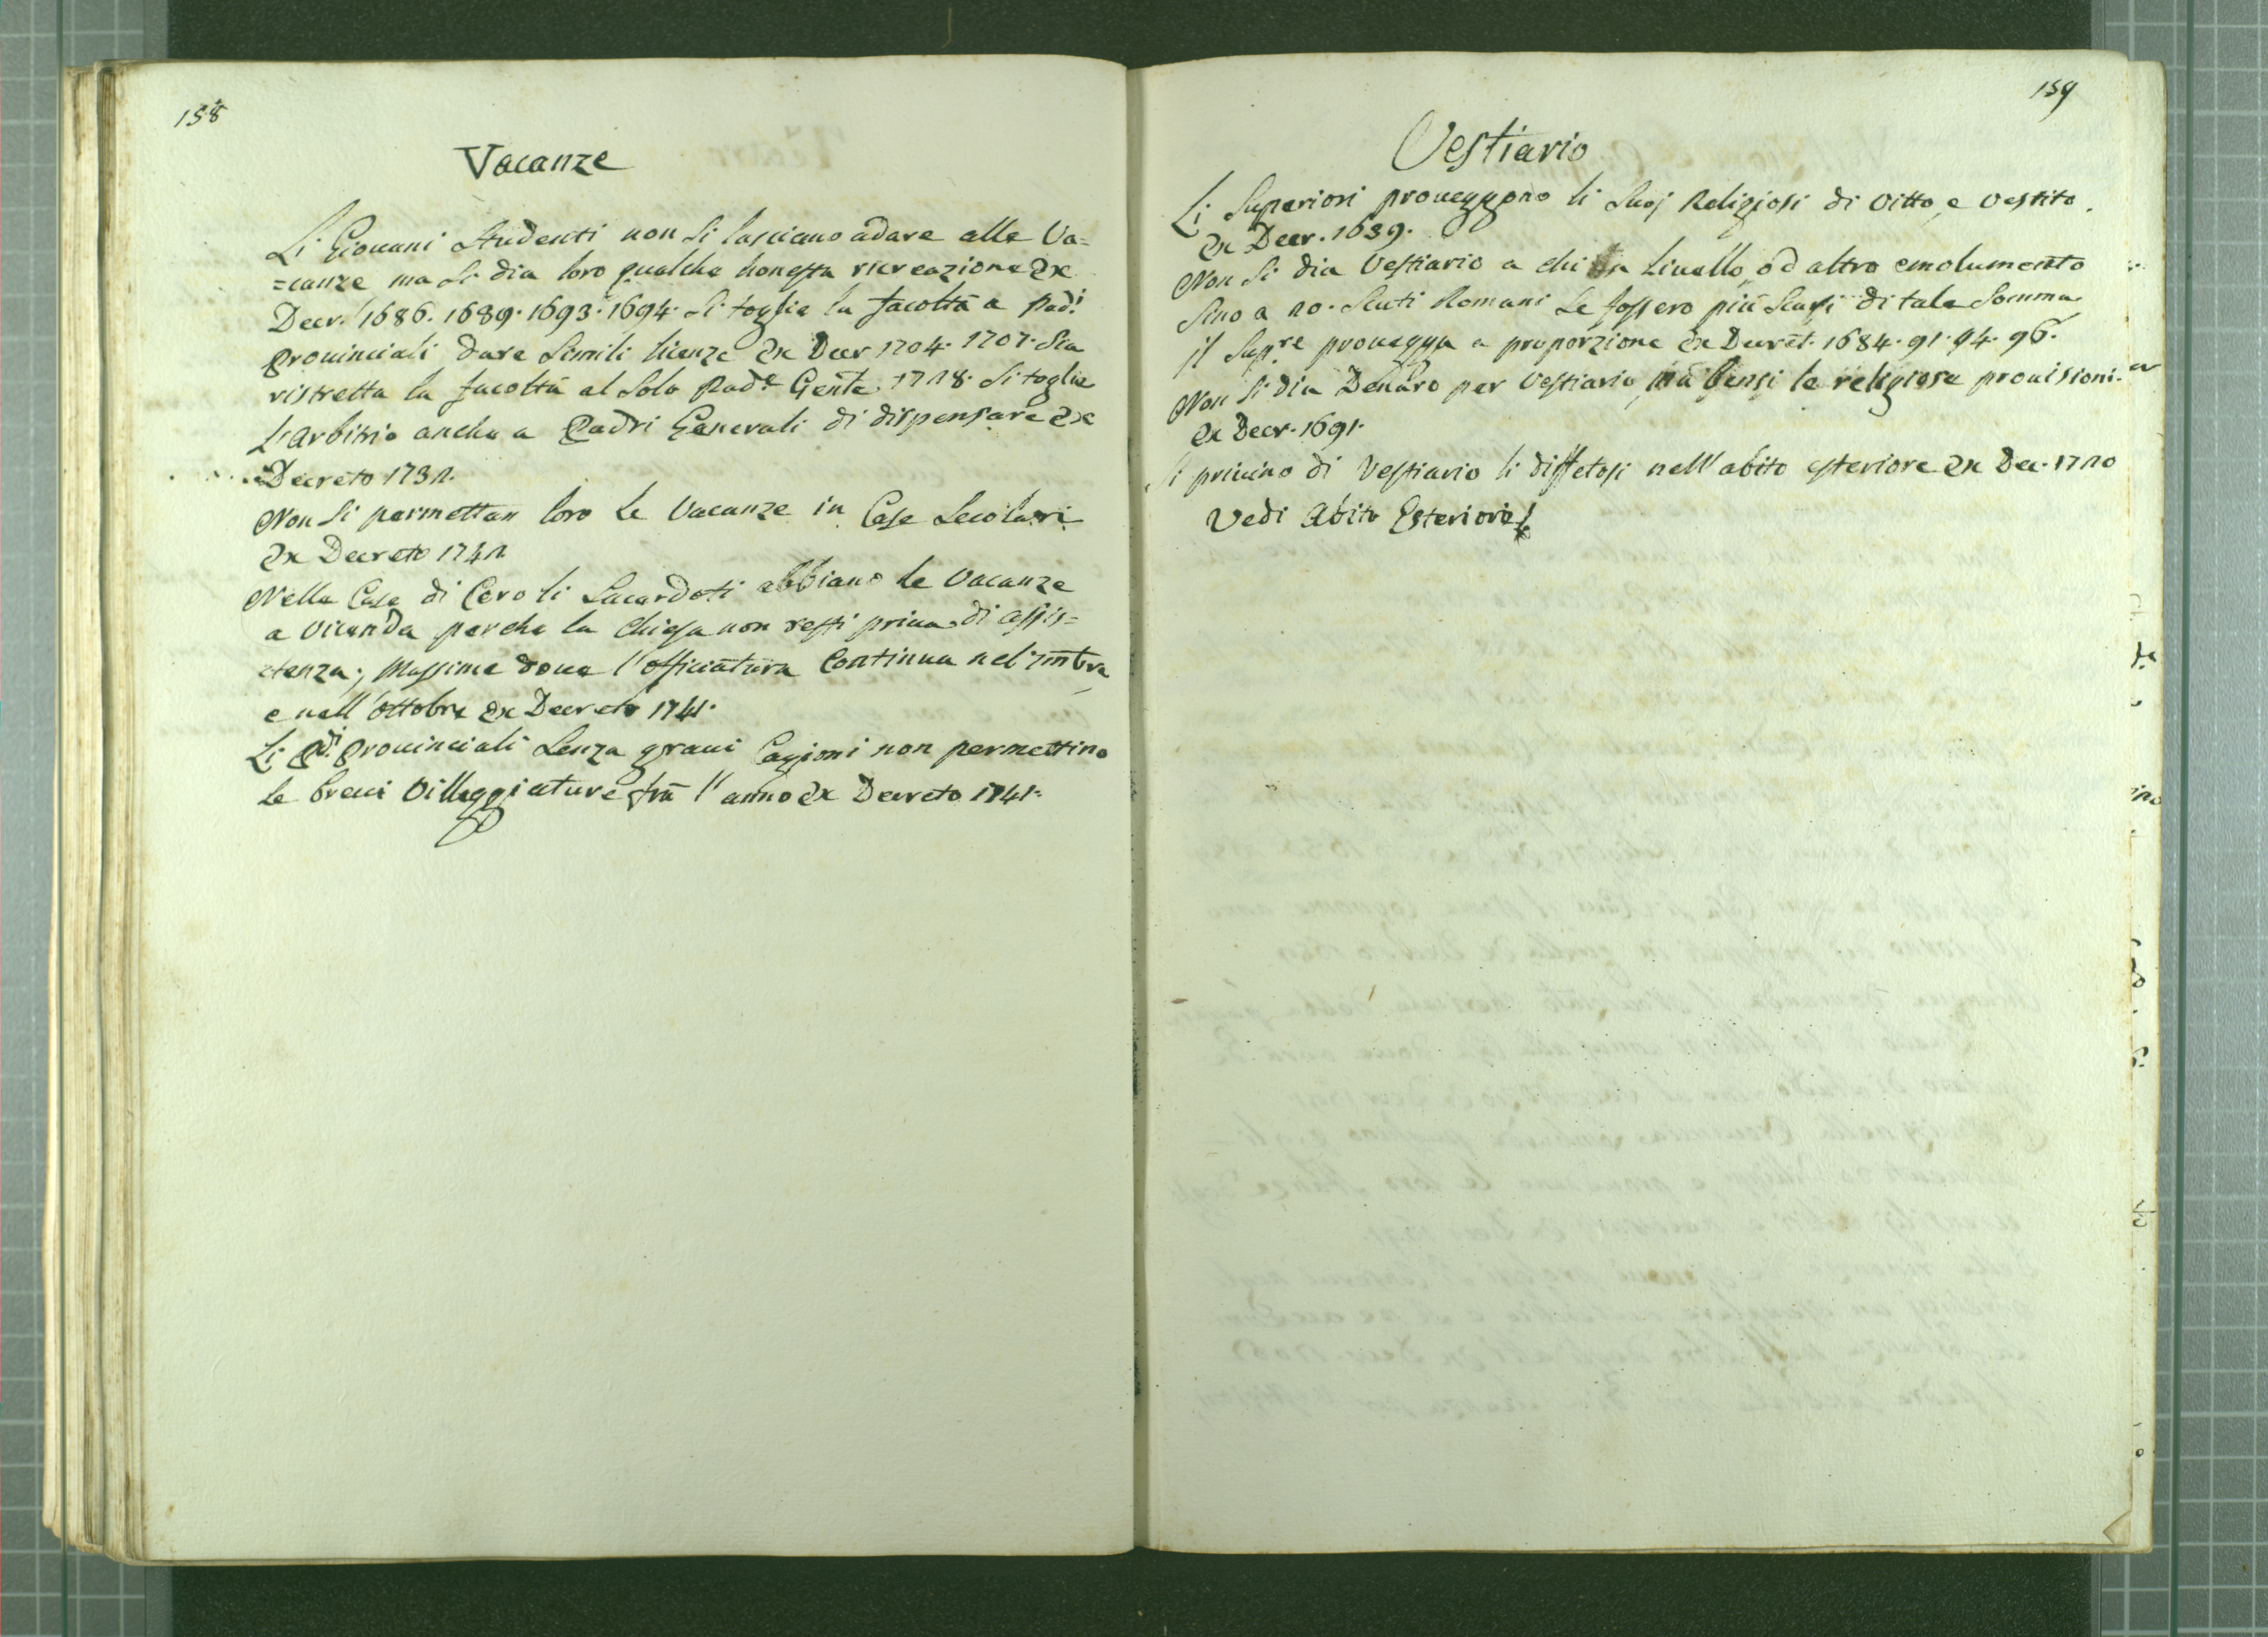 158
Vacanze
Li Giouani Studenti non si lasciano adare alle Va=
=canze ma si dia loro qualche honesta ricreazione Ex
Decr. 1686. 1689. 1693. 1694. si toglie la facoltà a Pad.i
Prouinciali dare simili licenze Ex Decr 1704. 1707. Sia
ristretta la facoltà al solo Pad.e Gen̅le. 1728. Si toglie
L'arbitrio anche a Padri Generali di dispensare Ex
Decreto 1732.
Non si permettan loro le Vacanze in Case Secolari
Ex Decreto 1742
Nelle Case di Coro li Sacerdoti abbiano le Vacanze
a vicenda perche la Chiesa non resti priua di assis=
stenza; Massime doue l'officiatura Continua nel 7m̅bre
e nell'ottobre Ex Decreto 1741.
Li P.di Prouinciali senza graui Cagioni non permettino
le breui Villeggiature frà l'anno Ex Decreto 1741.
159
Vestiario
Li Superiori proueggono li suoj Religiosi di vitto, e vestito.
Ex Decr. 1639.
Non si dia Vestiario a chi Liuello, od altro emolumento
sino a 20. Scuti Romani se fossero più scarsi di tale somma
il Sup.re prouegga a proporzione Ex Decret. 1684. 91. 94. 96.
Non si dia Denaro per Vestiario, mà bensi le religiose prouisioni.
Ex Decr. 1691.
Si priuino di Vestiario li diffetosi nell'abito esteriore Ex Dec. 1720
Vedi Abito Esteriore